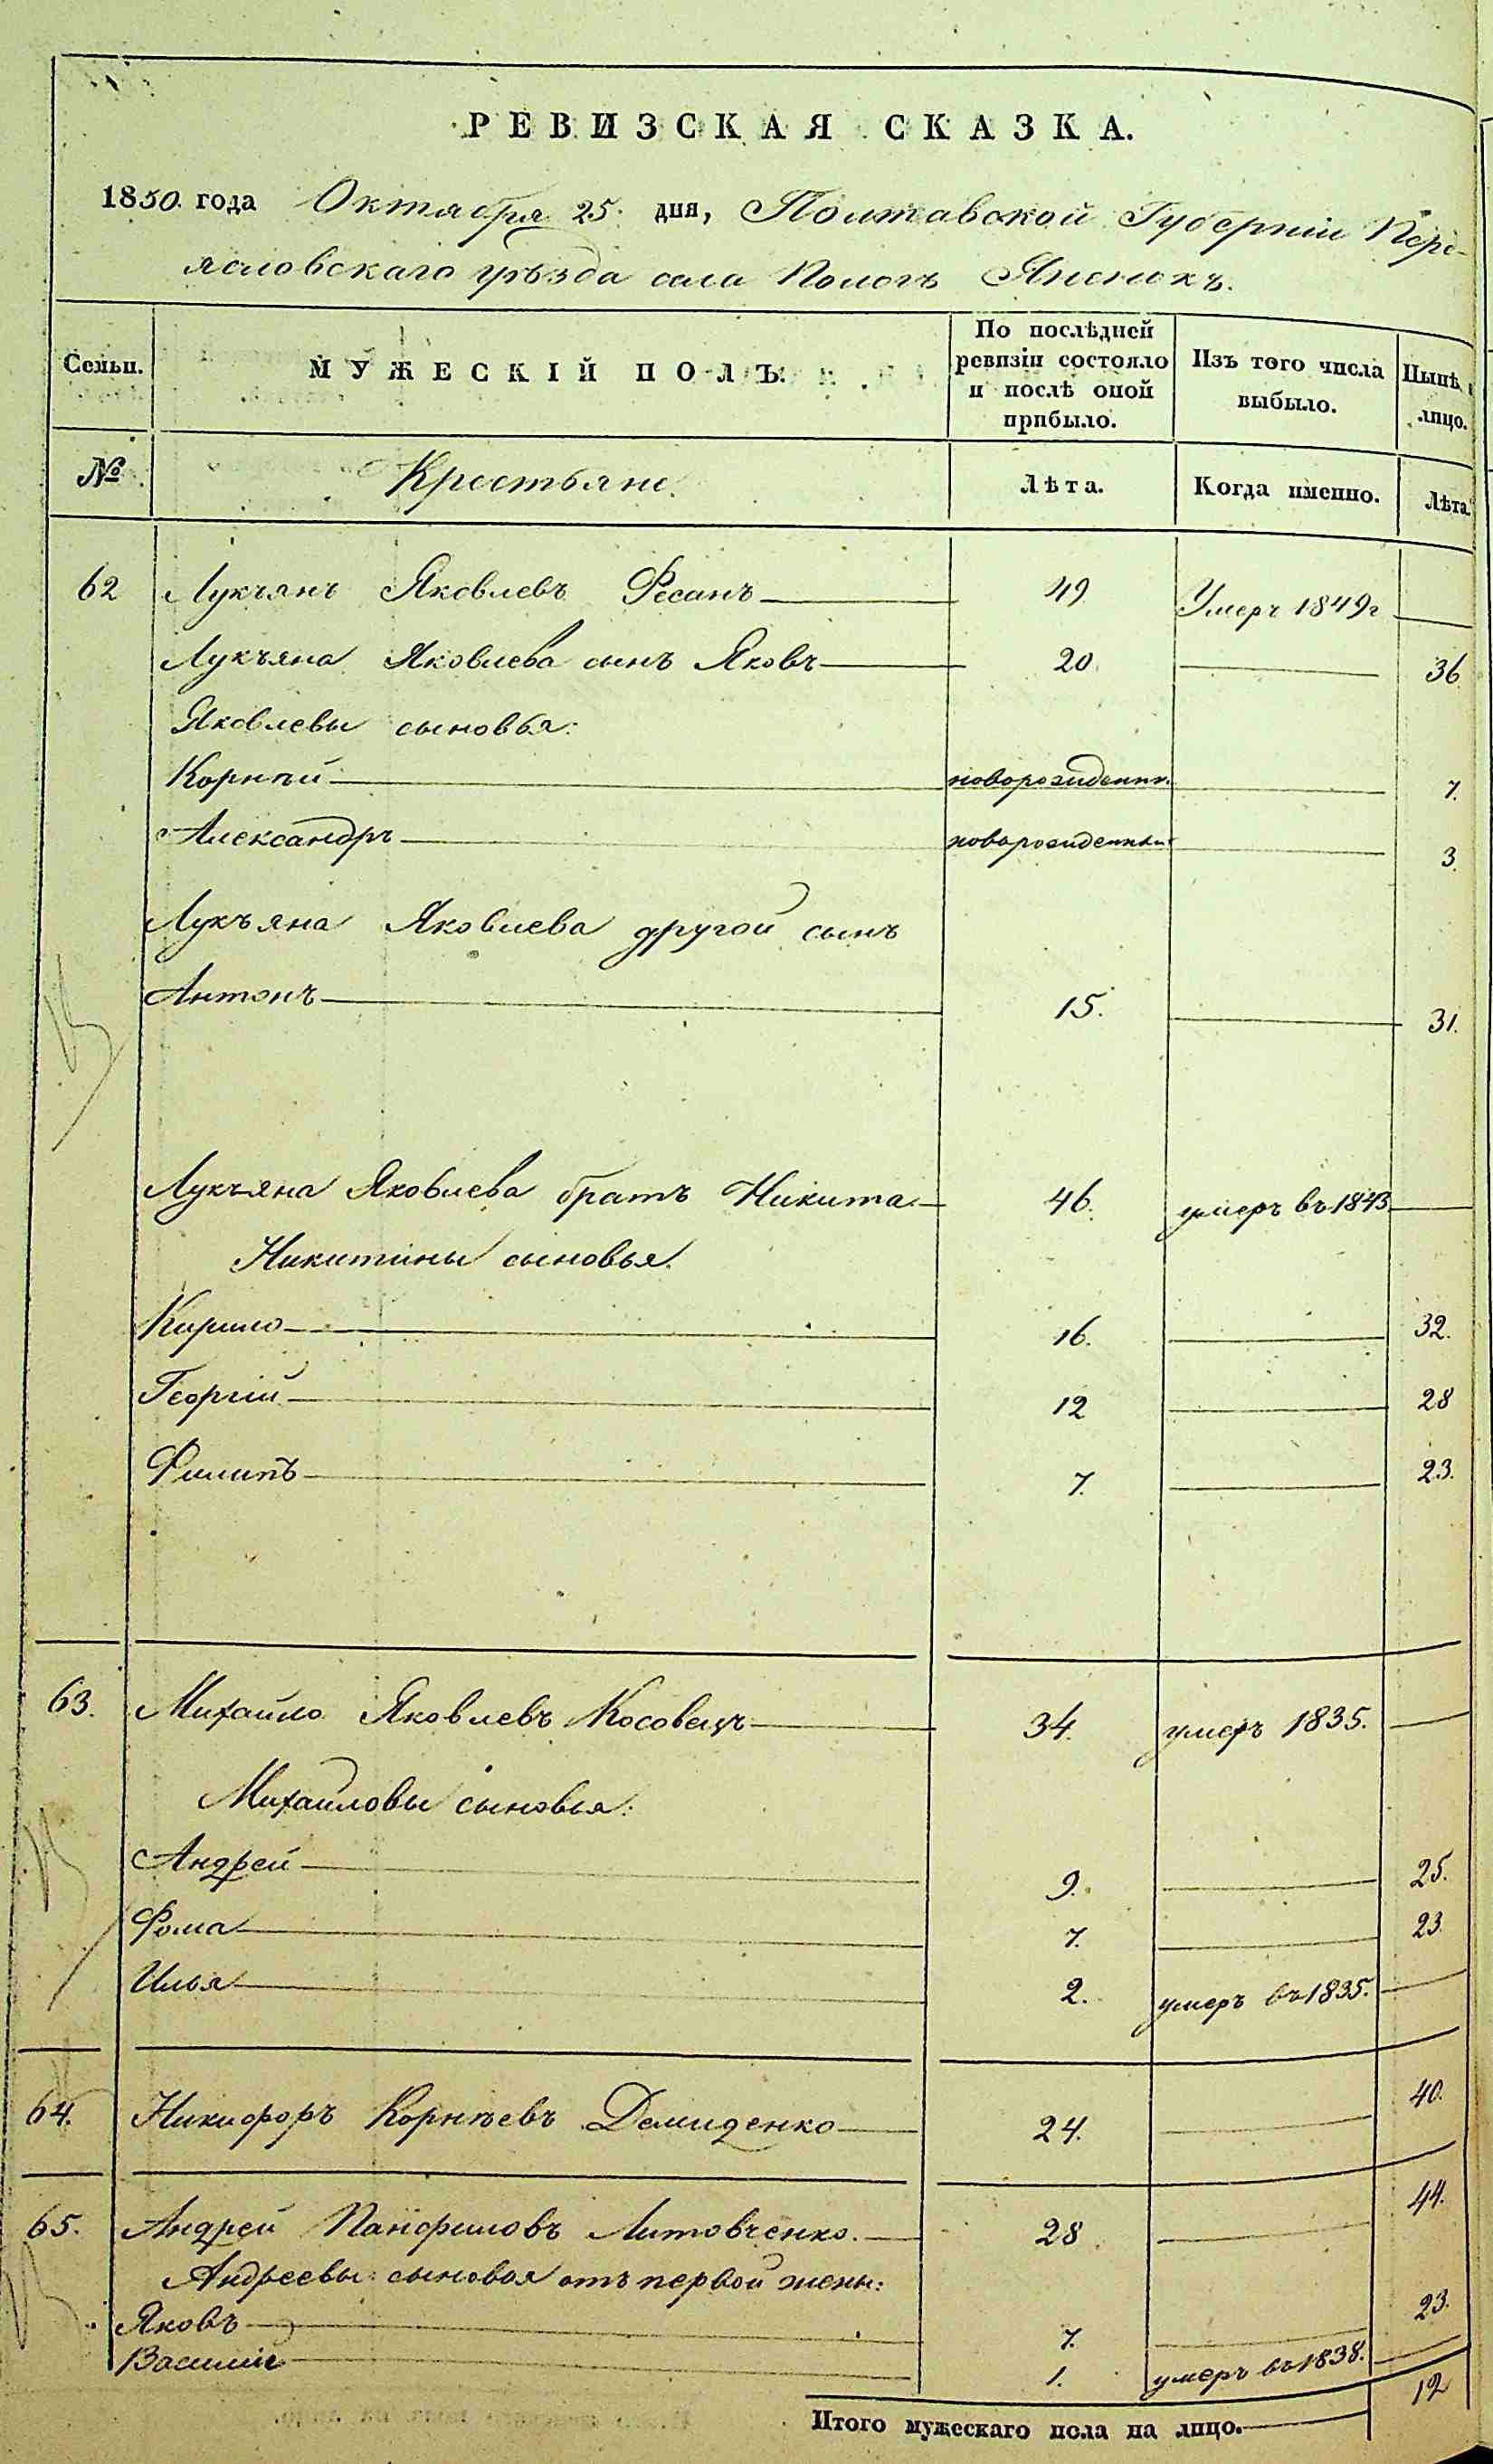 РЕВИЗСКАЯ СКАЗКА.
1850. года Октября 25. дня, Полтавской Губерніи Пере-
яславскаго уѣзда села Пологъ Яненокъ.
Сельп. МУЖЕСКІЙ ПОЛЪ. По послѣдней ревизіи состояло и послѣ оной прибыло. Изъ того числа выбыло. Нынѣ лицо.
№ Крестьяне. Лѣта. Когда именно. Лѣта.
62 Лукъянъ Яковлевъ Ресанъ 49 Умеръ 1849г
Лукъяна Яковлева сынъ Яковъ 20. 36
Яковлевы сыновья:
Корнѣй новорожденн. 7.
Александръ новорожденный 3.
Лукъяна Яковлева другой сынъ
Антонъ 15. 31.
Лукъяна Яковлева братъ Никита 46. умеръ въ 1843
Никитины сыновья.
Кирило 16. 32.
Георгій 12 28
Филипъ 7. 23.
63. Михайло Яковлевъ Косовецъ 34. умеръ 1835.
Михайловы сыновья:
Андрей 9. 25.
Фома 7. 23
Илья 2. умеръ въ 1835.
64. Никифоръ Корнѣевъ Демиденко 24. 40.
65. Андрей Панфиловъ Литовченко. 28. 44.
Андреевы сыновья отъ первой жены:
Яковъ 7. 23.
Василій 1. умеръ въ 1838.
Итого мужескаго пола на лицо. 12